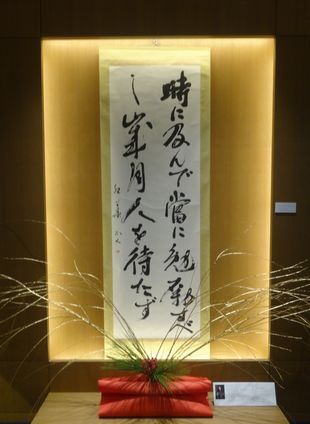 時に及んで當に勉勵すべ
し歳月人を待たず